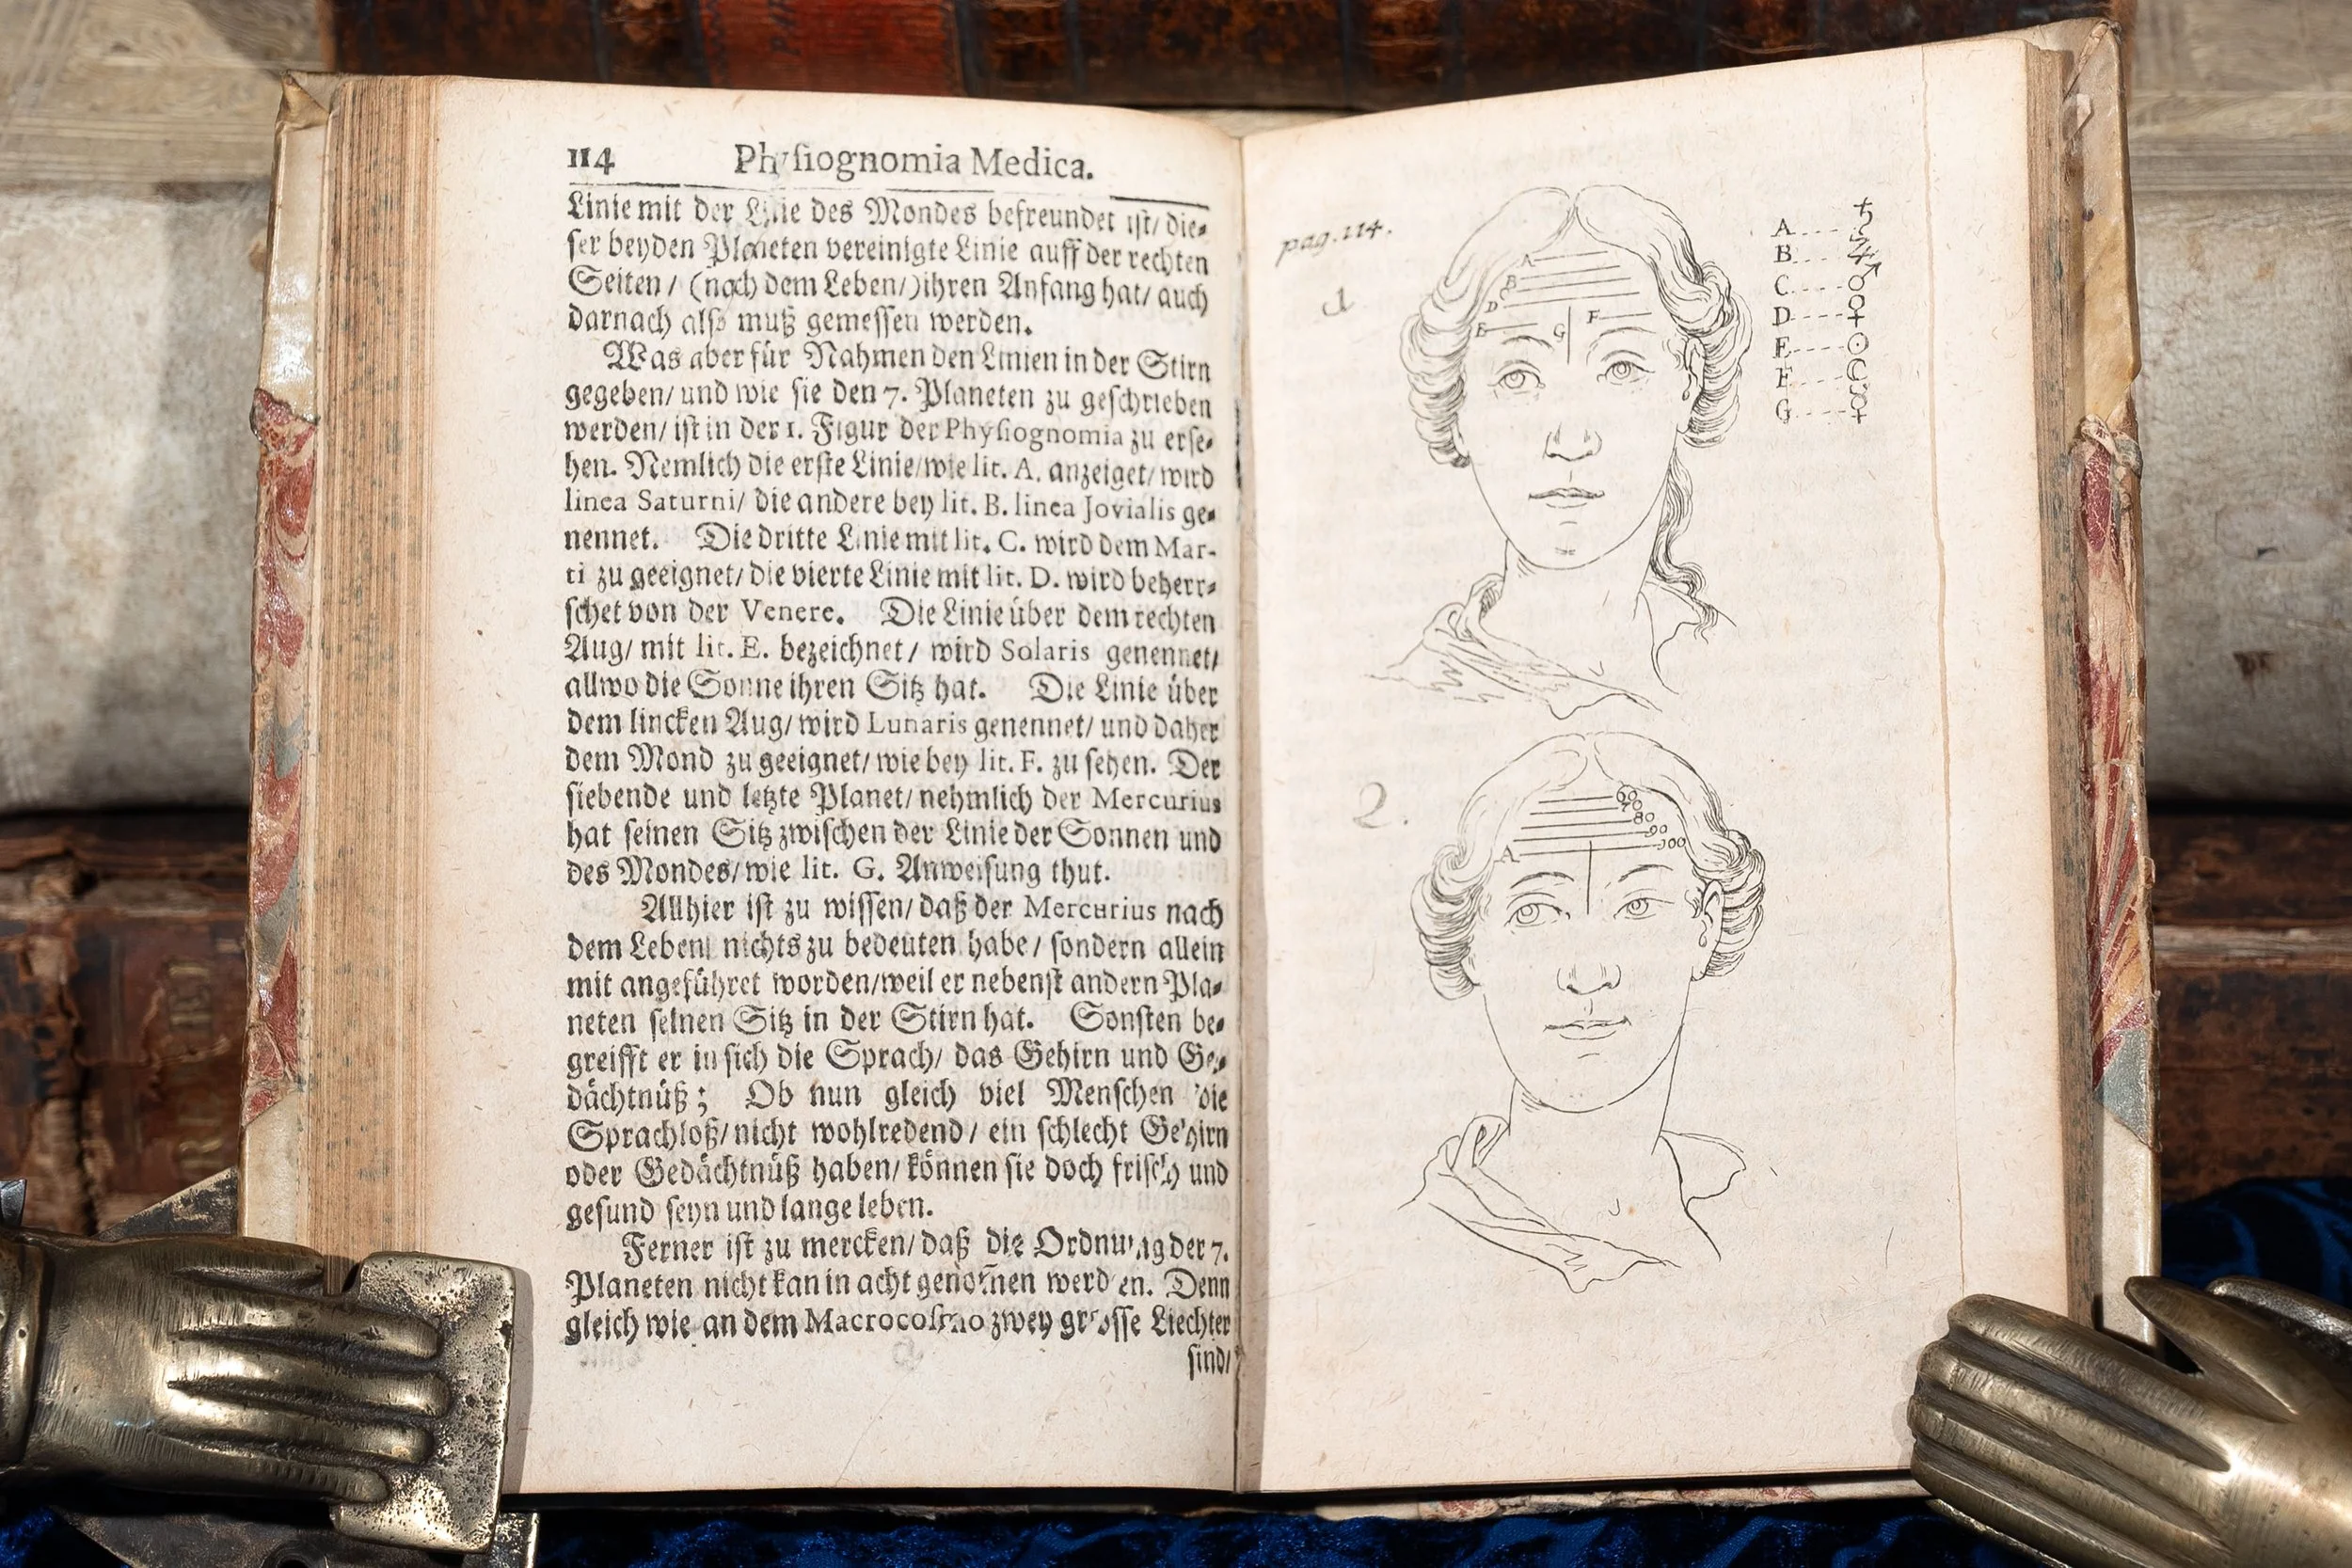 114 Physiognomia Medica.
Linie mit der Linie des Mondes befreundet ist/ die⸗
ser beyden Planeten vereinigte Linie auff der rechten
Seiten/ (nach dem Leben/) ihren Anfang hat/ auch
darnach also muß gemessen werden.
Was aber für Nahmen den Linien in der Stirn
gegeben/ und wie sie den 7. Planeten zu geschrieben
werden/ ist in der 1. Figur der Physiognomia zu erse⸗
hen. Nemlich die erste Linie/ wie lit. A. anzeiget/ wird
linea Saturni/ die andere bey lit. B. linea Jovialis ge⸗
nennet. Die dritte Linie mit lit. C. wird dem Mar-
ti zu geeignet/ die vierte Linie mit lit. D. wird beherr⸗
schet von der Venere. Die Linie über dem rechten
Aug/ mit lit. E. bezeichnet/ wird Solaris genennet/
allwo die Sonne ihren Sitz hat. Die Linie über
dem lincken Aug/ wird Lunaris genennet/ und daher
dem Mond zu geeignet/ wie bey lit. F. zu sehen. Der
siebende und letzte Planet/ nehmlich der Mercurius
hat seinen Sitz zwischen der Linie der Sonnen und
des Mondes/ wie lit. G. Anweisung thut.
Allhier ist zu wissen/ daß der Mercurius nach
dem Leben nichts zu bedeuten habe/ sondern allein
mit angeführet worden/ weil er nebenst andern Pla⸗
neten seinen Sitz in der Stirn hat. Sonsten be⸗
greifft er in sich die Sprach/ das Gehirn und Ge⸗
dächtnüß; Ob nun gleich viel Menschen die
Sprachloß/ nicht wohlredend/ ein schlecht Gehirn
oder Gedächtnüß haben/ können sie doch frisch und
gesund seyn und lange leben.
Ferner ist zu mercken/ daß die Ordnung der 7.
Planeten nicht kan in acht genom̃en werden. Denn
gleich wie an dem Macrocosmo zwey grosse Liechter
sind/
pag. 114.
1
A
B
C
D
E
G
F
A---- ♄
B---- ♃
C---- ♂
D---- ♀
E---- ☉
F---- ☾
G---- ☿
2.
60
70
80
90
100
A